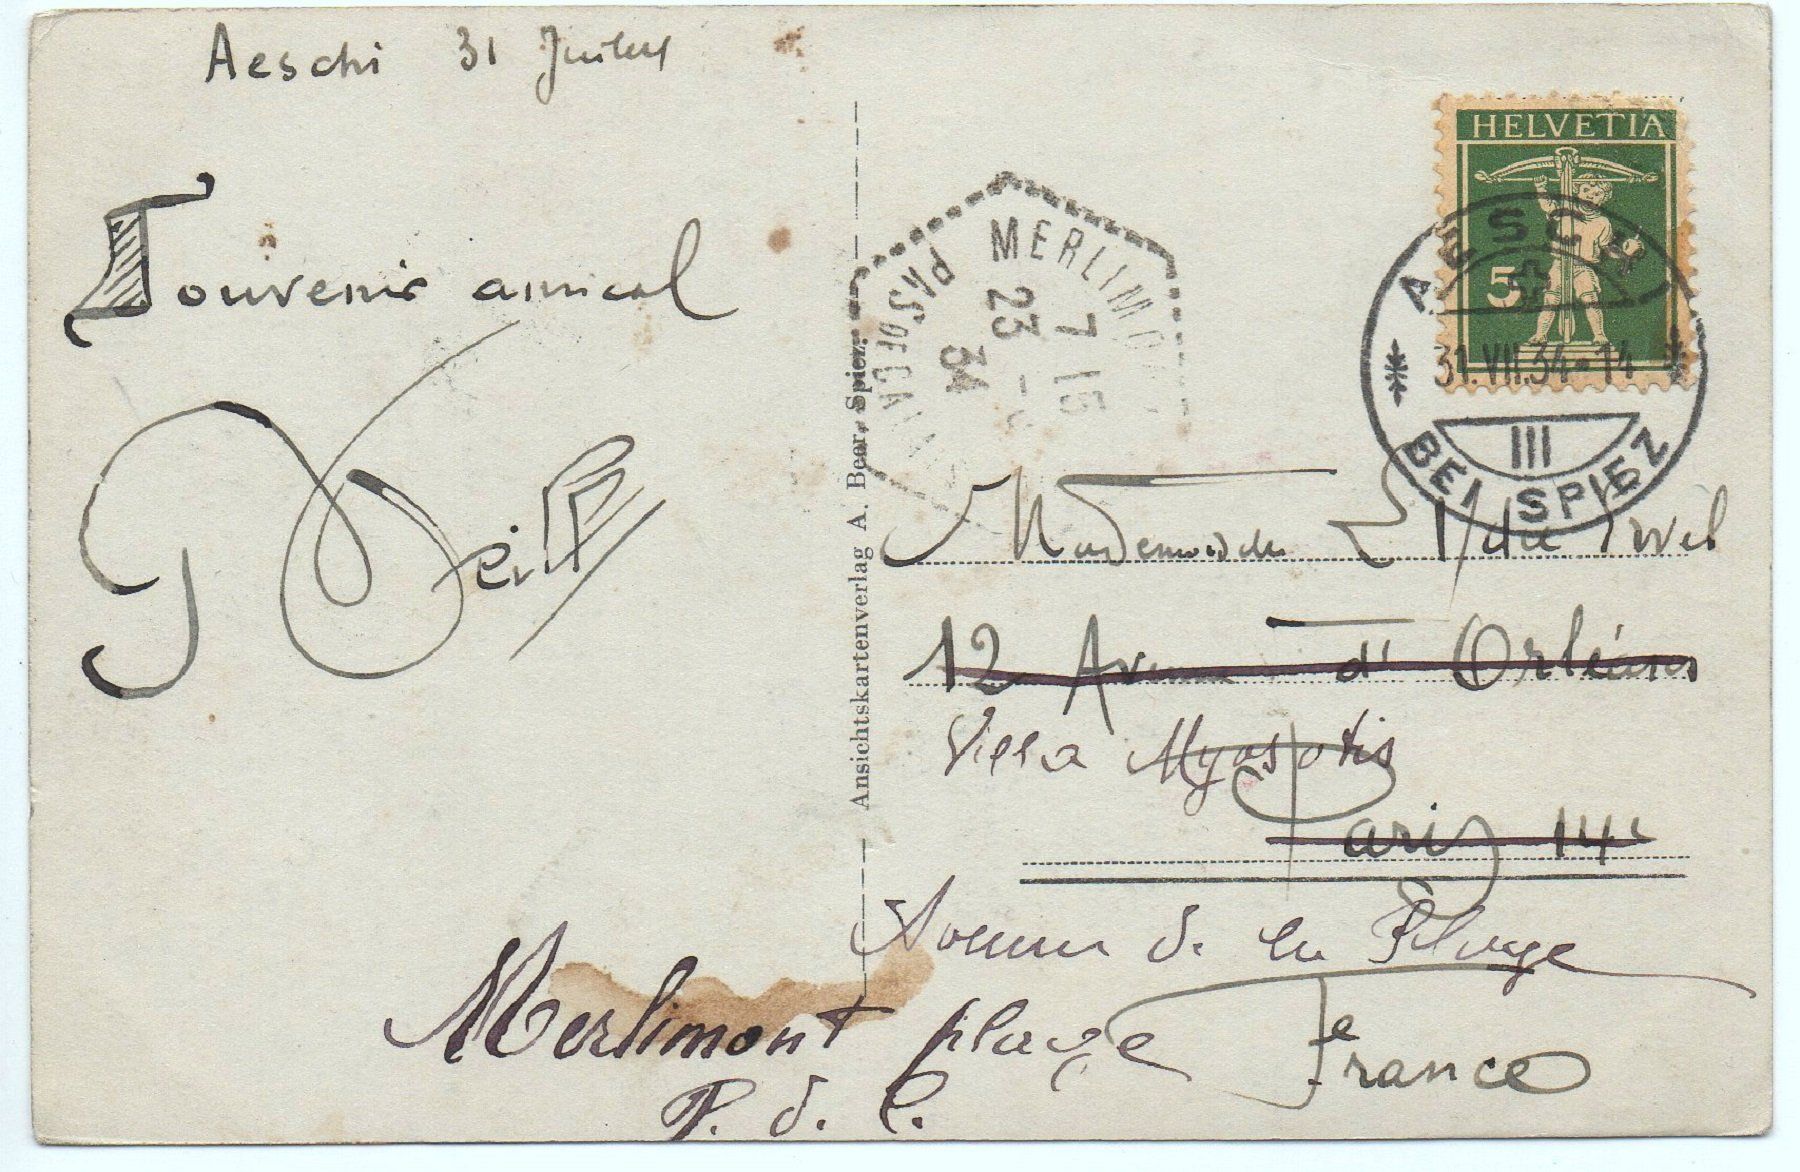 Aeschi 31 Juillet
Souvenir amical
Ansichtskartenverlag A. Beer, Spiez.
MERLIMO
PAS DE CA
7 15
23
34
HELVETIA
5
AESCHI
31.VII.34-14
III
BEI SPIEZ
Mademoiselle
12 Avenue d'Orléans
Villa Myosotis
Paris 14e
Avenue de la Plage
Merlimont plage
P. d. C.
France